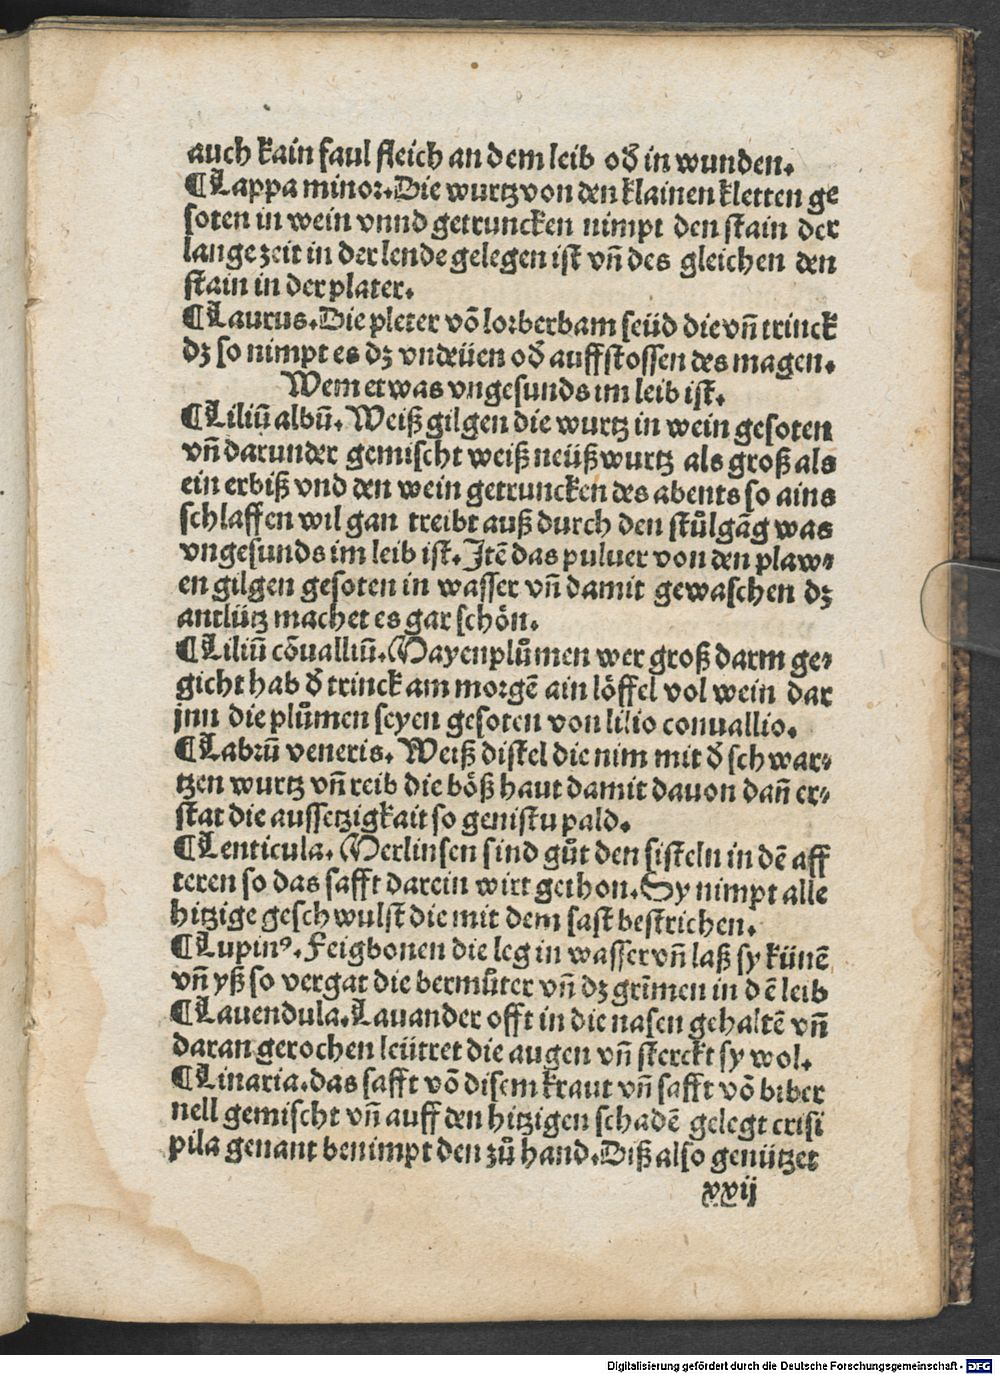 auch kain faul fleich an dem leib oď in wunden.
¶Lappa minor. Die wurtz von den klainen kletten ge
soten in wein vnnd getruncken nimpt den stain der
lange zeit in der lende gelegen ist vñ des gleichen den
stain in der plater.
¶Laurus. Die pleter võ lorberbam seüd die vñ trinck
dz so nimpt es dz vndeüen oď auffstossen des magen.
Wem etwas vngesunds im leib ist.
¶Liliū albū. Weiß gilgen die wurtz in wein gesoten
vñ darunder gemischt weiß neüßwurtz als groß als
ein erbiß vnd den wein getruncken des abents so ains
schlaffen wil gan treibt auß durch den stůlgãg was
vngesunds im leib ist. Jtẽ das puluer von den plaw⸗
en gilgen gesoten in wasser vñ damit gewaschen dz
antlütz machet es gar schön.
¶Liliū cõualliū. Mayenplůmen wer groß darm ge⸗
gicht hab ď trinck am morgẽ ain löffel vol wein dar
jnn die plůmen seyen gesoten von lilio conuallio.
¶Labrū veneris. Weiß distel die nim mit ď schwar⸗
tzen wurtz vñ reib die böß haut damit dauon dañ er⸗
stat die aussetzigkait so genistu pald.
¶Lenticula. Merlinsen sind gůt den fisteln in dẽ aff
teren so das safft darein wirt gethon. Sy nimpt alle
hitzige geschwulst die mit dem saft bestrichen.
¶Lupinꝰ. Feigbonen die leg in wasser vñ laß sy künẽ
vñ yß so vergat die bermůter vñ dz grĩmen in dẽ leib
¶Lauendula. Lauander offt in die nasen gehaltẽ vñ
daran gerochen leütret die augen vñ sterckt sy wol.
¶Linaria. das safft võ disem kraut vñ safft võ biber
nell gemischt vñ auff den hitzigen schadẽ gelegt erisi
pila genant benimpt den zů hand. Diß also genützet
xxij
Digitalisierung gefördert durch die Deutsche Forschungsgemeinschaft - DFG